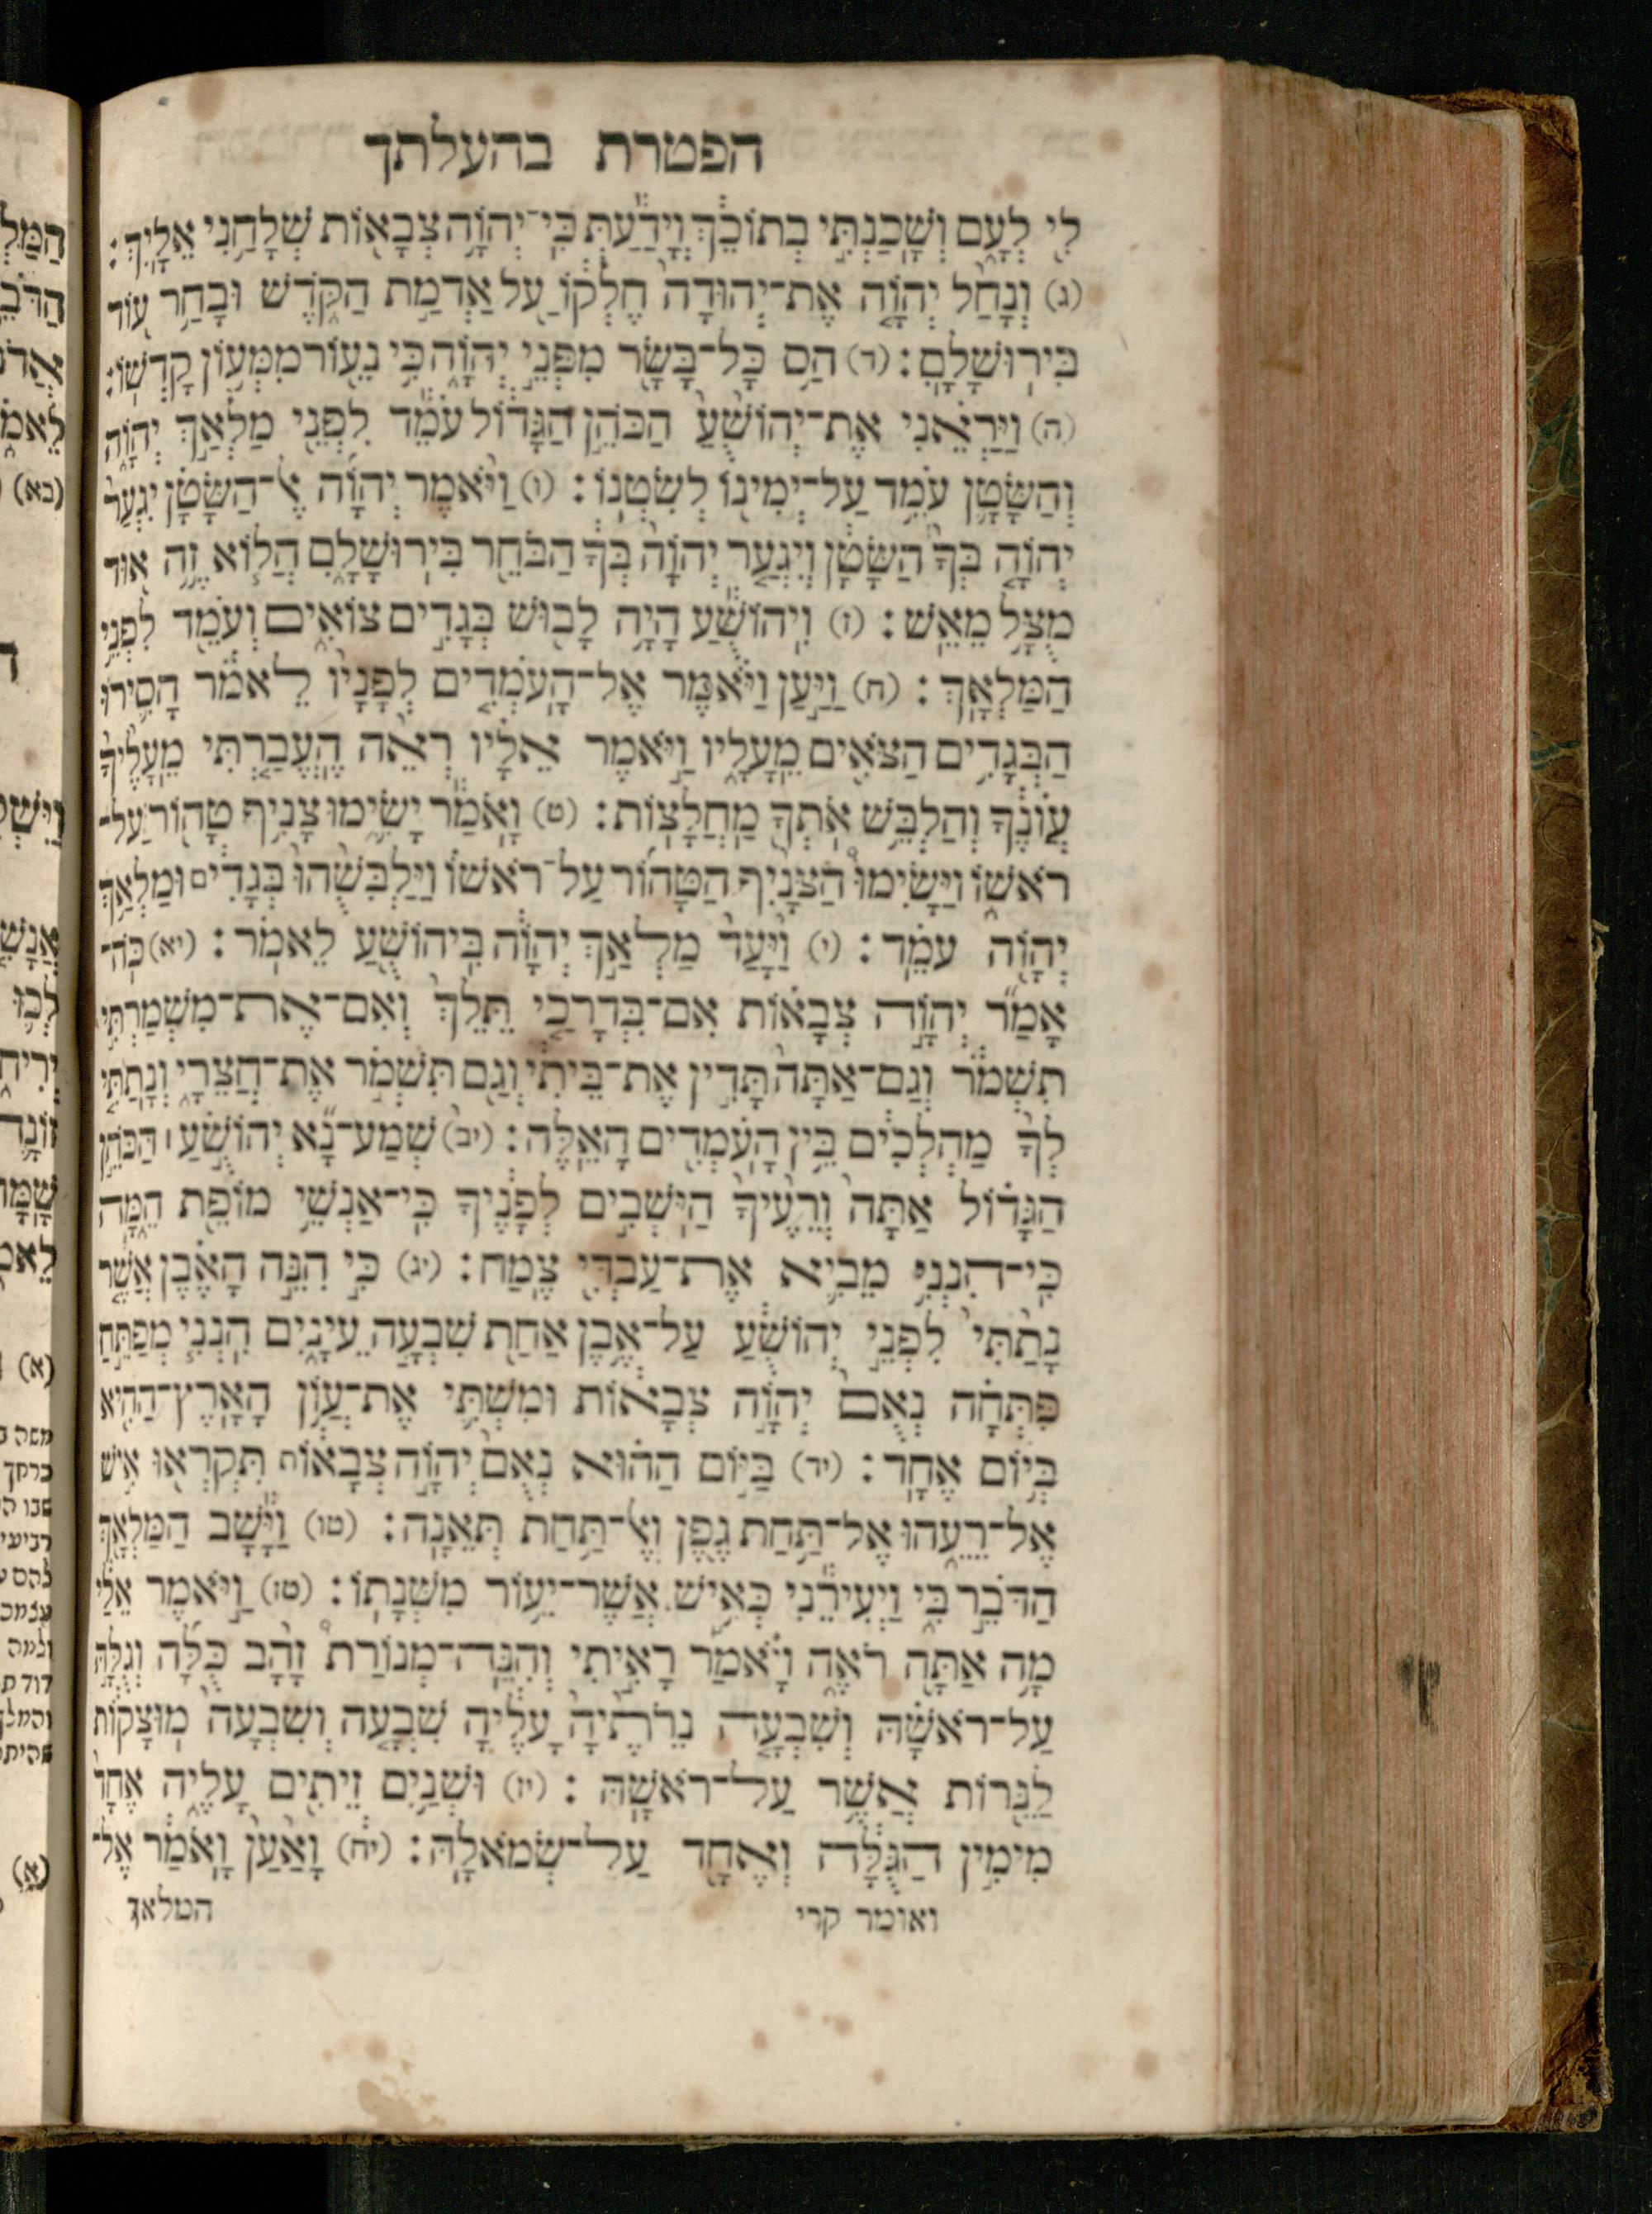 הפטרת בהעלתך
לִ֖י לְעָ֑ם וְשָׁכַנְתִּ֣י בְתוֹכֵ֔ךְ וְיָדַ֕עַתְּ כִּֽי־יְהוָ֥ה צְבָא֖וֹת שְׁלָחַ֥נִי אֵלָֽיִךְ׃
(ג) וְנָחַ֨ל יְהוָ֤ה אֶת־יְהוּדָה֙ חֶלְק֔וֹ עַ֖ל אַדְמַ֣ת הַקֹּ֑דֶשׁ וּבָחַ֥ר ע֖וֹד
בִּירֽוּשָׁלָֽםִ׃ (ד) הַ֥ס כָּל־בָּשָׂ֖ר מִפְּנֵ֣י יְהוָ֑ה כִּ֥י נֵע֖וֹר מִמְּע֥וֹן קָדְשֽׁוֹ׃
(ה) וַיַּרְאֵ֗נִי אֶת־יְהוֹשֻׁ֙עַ֙ הַכֹּהֵ֣ן הַגָּד֔וֹל עֹמֵ֕ד לִפְנֵ֖י מַלְאַ֣ךְ יְהוָ֑ה
וְהַשָּׂטָ֛ן עֹמֵ֥ד עַל־יְמִינ֖וֹ לְשִׂטְנֽוֹ׃ (ו) וַיֹּ֨אמֶר יְהוָ֜ה אֶל־הַשָּׂטָ֗ן יִגְעַ֨ר
יְהוָ֤ה בְּךָ֙ הַשָּׂטָ֔ן וְיִגְעַ֤ר יְהוָה֙ בְּךָ֔ הַבֹּחֵ֖ר בִּירֽוּשָׁלָ֑םִ הֲל֧וֹא זֶ֦ה א֖וּד
מֻצָּ֥ל מֵאֵֽשׁ׃ (ז) וִיהוֹשֻׁ֕עַ הָיָ֥ה לָב֖וּשׁ בְּגָדִ֣ים צוֹאִ֑ים וְעֹמֵ֖ד לִפְנֵ֥י
הַמַּלְאָֽךְ׃ (ח) וַיַּ֣עַן וַיֹּ֗אמֶר אֶל־הָעֹמְדִ֤ים לְפָנָיו֙ לֵאמֹ֔ר הָסִ֛ירוּ
הַבְּגָדִ֥ים הַצֹּאִ֖ים מֵעָלָ֑יו וַיֹּ֣אמֶר אֵלָ֗יו רְאֵ֨ה הֶעֱבַ֤רְתִּי מֵעָלֶ֙יךָ֙
עֲוֺנֶ֔ךָ וְהַלְבֵּ֥שׁ אֹתְךָ֖ מַחֲלָצֽוֹת׃ (ט) וָאֹמַ֕ר יָשִׂ֛ימוּ צָנִ֥יף טָה֖וֹר עַל־
רֹאשׁ֑וֹ וַיָּשִׂימוּ֩ הַצָּנִ֨יף הַטָּה֜וֹר עַל־רֹאשׁ֗וֹ וַיַּלְבִּשֻׁ֙הוּ֙ בְּגָדִ֔ים וּמַלְאַ֥ךְ
יְהוָ֖ה עֹמֵֽד׃ (י) וַיָּ֙עַד֙ מַלְאַ֣ךְ יְהוָ֔ה בִּיהוֹשֻׁ֖עַ לֵאמֹֽר׃ (יא) כֹּֽה־
אָמַ֞ר יְהוָ֣ה צְבָא֗וֹת אִם־בִּדְרָכַ֤י תֵּלֵךְ֙ וְאִם־אֶת־מִשְׁמַרְתִּ֣י
תִשְׁמֹ֔ר וְגַם־אַתָּה֙ תָּדִ֣ין אֶת־בֵּיתִ֔י וְגַ֖ם תִּשְׁמֹ֣ר אֶת־חֲצֵרָ֑י וְנָתַתִּ֤י
לְךָ֙ מַהְלְכִ֔ים בֵּ֥ין הָעֹמְדִ֖ים הָאֵֽלֶּה׃ (יב) שְֽׁמַֽע־נָ֞א יְהוֹשֻׁ֣עַ ׀ הַכֹּהֵ֣ן
הַגָּד֗וֹל אַתָּה֙ וְרֵעֶ֙יךָ֙ הַיֹּשְׁבִ֣ים לְפָנֶ֔יךָ כִּֽי־אַנְשֵׁ֥י מוֹפֵ֖ת הֵ֑מָּה
כִּֽי־הִנְנִ֥י מֵבִ֛יא אֶת־עַבְדִּ֖י צֶֽמַח׃ (יג) כִּ֣י הִנֵּ֣ה הָאֶ֗בֶן אֲשֶׁ֤ר
נָתַ֙תִּי֙ לִפְנֵ֣י יְהוֹשֻׁ֔עַ עַל־אֶ֥בֶן אַחַ֖ת שִׁבְעָ֣ה עֵינָ֑יִם הִנְנִ֧י מְפַתֵּ֣חַ
פִּתֻּחָ֗הּ נְאֻם֙ יְהוָ֣ה צְבָא֔וֹת וּמַשְׁתִּ֛י אֶת־עֲוֺ֥ן הָאָֽרֶץ־הַהִ֖יא
בְּי֥וֹם אֶחָֽד׃ (יד) בַּיּ֣וֹם הַה֗וּא נְאֻם֙ יְהוָ֣ה צְבָא֔וֹת תִּקְרְא֖וּ אִ֣ישׁ
אֶל־רֵעֵ֑הוּ אֶל־תַּ֥חַת גֶּ֖פֶן וְאֶל־תַּ֥חַת תְּאֵנָֽה׃ (טו) וַיָּ֕שָׁב הַמַּלְאָ֖ךְ
הַדֹּבֵ֣ר בִּ֑י וַיְעִירֵ֕נִי כְּאִ֖ישׁ אֲשֶׁר־יֵע֥וֹר מִשְּׁנָתֽוֹ׃ (טז) וַיֹּ֣אמֶר אֵלַ֔י
מָ֥ה אַתָּ֖ה רֹאֶ֑ה וָיֹּאמַ֡ר רָאִ֣יתִי וְהִנֵּ֣ה־מְנוֹרַת֩ זָהָ֨ב כֻּלָּ֜הּ וְגֻלָּ֣הּ
עַל־רֹאשָׁ֗הּ וְשִׁבְעָ֤ה נֵרֹתֶ֙יהָ֙ עָלֶ֔יהָ שִׁבְעָ֤ה וְשִׁבְעָה֙ מֽוּצָק֔וֹת
לַנֵּר֖וֹת אֲשֶׁ֥ר עַל־רֹאשָֽׁהּ׃ (יז) וּשְׁנַ֥יִם זֵיתִ֖ים עָלֶ֑יהָ אֶחָד֙
מִימִ֣ין הַגֻּלָּ֔ה וְאֶחָ֖ד עַל־שְׂמֹאלָֽהּ׃ (יח) וָאַ֙עַן֙ וָֽאֹמַ֔ר אֶל־
ואומר קרי המלאך